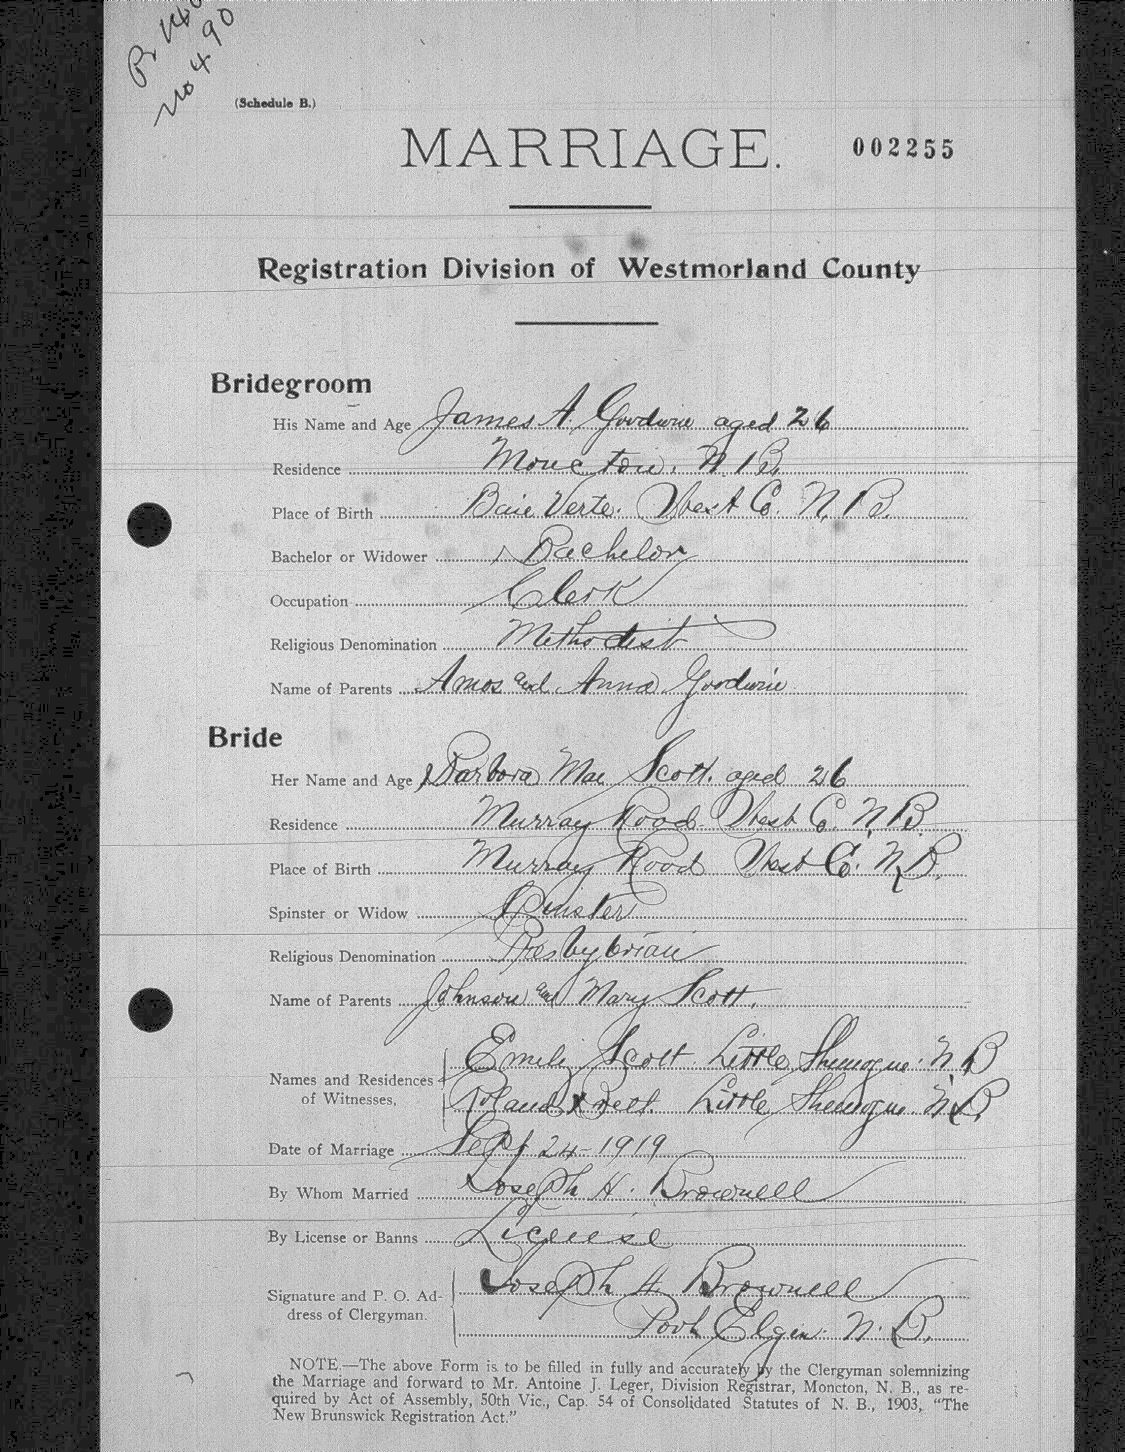 Pr 140
No 490
(Schedule B.)
MARRIAGE. 002255
Registration Division of Westmorland County
Bridegroom
His Name and Age James A. Goodwin aged 26
Residence Moncton. N. B.
Place of Birth Baie Verte. West Co. N. B.
Bachelor or Widower Bachelor
Occupation Clerk
Religious Denomination Methodist
Name of Parents Amos and Anna Goodwin
Bride
Her Name and Age Barbora Mae Scott. aged 26
Residence Murray Road West Co. N. B.
Place of Birth Murray Road West Co. N. B.
Spinster or Widow Spinster
Religious Denomination Presbyterian
Name of Parents Johnson and Mary Scott.
Names and Residences of Witnesses, Emily Scott Little Shemogue. N. B
Roland Little Shemogue N. B
Date of Marriage Sept 24-1919
By Whom Married Joseph H. Brownell
By License or Banns License
Signature and P. O. Ad- Joseph H. Brownell
dress of Clergyman. Port Elgin. N. B.
NOTE.—The above Form is to be filled in fully and accurately by the Clergyman solemnizing
the Marriage and forward to Mr. Antoine J. Leger, Division Registrar, Moncton, N. B., as re-
quired by Act of Assembly, 50th Vic., Cap. 54 of Consolidated Statutes of N. B., 1903, "The
New Brunswick Registration Act."